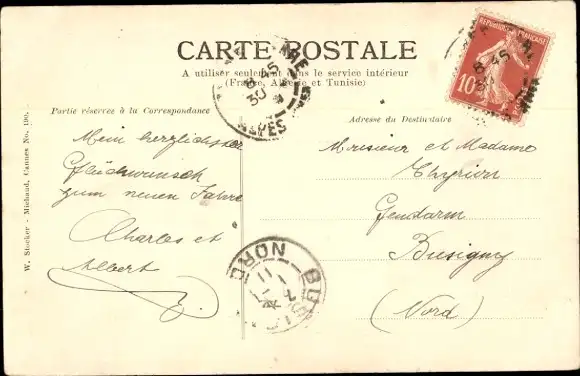 CARTE POSTALE
A utiliser seulement dans le service intérieur
(France, Algérie et Tunisie)
Partie réservée à la Correspondance
Adresse du Destinataire
Mein herzlichster
Glückwunsch
zum neuen Jahre
Charles et
Albert
Monsieur et Madame
Gendarm
Busigny
(Nord)
W. Stocker - Michaud, Cannes No. 190
REPUBLIQUE FRANÇAISE
10
8 45
NORD